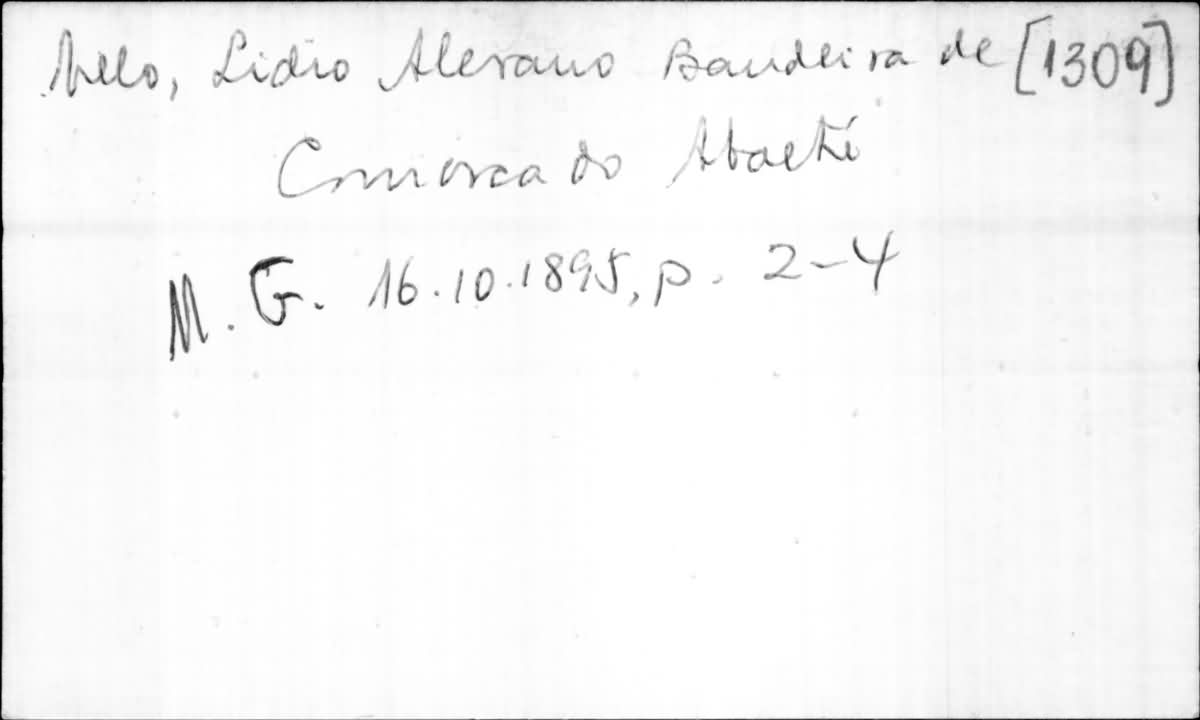 Melo, Lidio Alerano Bandeira de [1309]
Comarca do Abaeté
M. G. 16.10.1895, p. 2-4